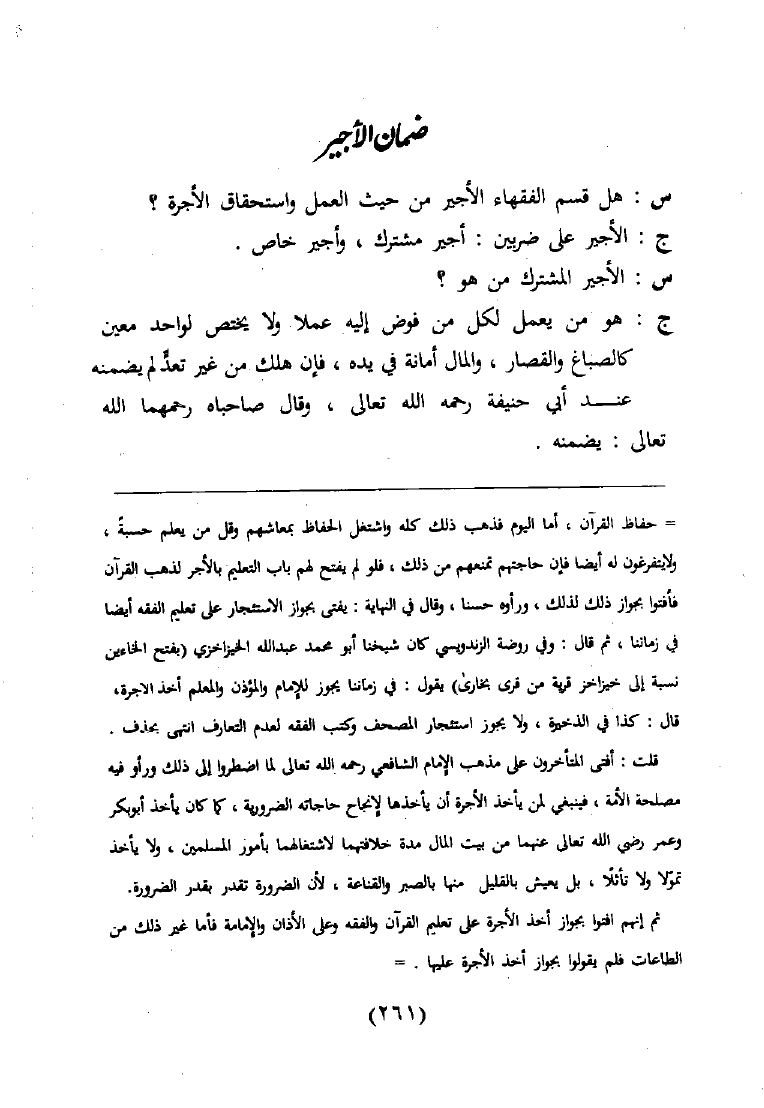 ضمان الأجير
س : هل قسم الفقهاء الأجير من حيث العمل واستحقاق الأجرة ؟
ج : الأجير على ضربين : أجير مشترك ، وأجير خاص .
س : الأجير المشترك من هو ؟
ج : هو من يعمل لكل من فوض إليه عملا ولا يختص لواحد معين
كالصباغ والقصار ، والمال أمانة في يده ، فإن هلك من غير تعدٍّ لم يضمنه
عنـــد أبي حنيفة رحمه الله تعالى ، وقال صاحباه رحمهما الله
تعالى : يضمنه .
= حفاظ القرآن ، أما اليوم فذهب ذلك كله واشتغل الحفاظ بمعاشهم وقل من يعلم حسبةً ،
ولايتفرغون له أيضا فإن حاجتهم تمنعهم من ذلك ، فلو لم يفتح لهم باب التعليم بالأجر لذهب القرآن
فأفتوا بجواز ذلك لذلك ، ورأوه حسنا ، وقال في النهاية : يفتى بجواز الاستئجار على تعليم الفقه أيضا
في زماننا ، ثم قال : وفي روضة الزندويسي كان شيخنا أبو محمد عبدالله الخيزاخزي (بفتح الخاءين
نسبة إلى خيزاخز قرية من قرى بخارىٰ) يقول : في زماننا يجوز للإمام والمؤذن والمعلم أخذ الاجرة،
قال : كذا في الذخيرة ، ولا يجوز استئجار المصحف وكتب الفقه لعدم التعارف انتهى بحذف .
قلت : أفتى المتأخرون على مذهب الإمام الشافعي رحمه الله تعالى لما اضطروا إلى ذلك ورأو فيه
مصلحة الأمة ، فينبغي لمن يأخذ الأجرة أن يأخذها لإنجاح حاجاته الضرورية ، كما كان يأخذ أبوبكر
وعمر رضي الله تعالى عنهما من بيت المال مدة خلافتهما لاشتغالهما بأمور المسلمين ، ولا يأخذ
تموّلا ولا تأثلًا ، بل يعيش بالقليل منها بالصبر والقناعة ، لأن الضرورة تقدر بقدر الضرورة.
ثم إنهم افتوا بجواز أخذ الأجرة على تعليم القرآن والفقه وعلى الأذان والإمامة فأما غير ذلك من
الطاعات فلم يقولوا بجواز أخذ الأجرة عليها . =
(٢٦١)